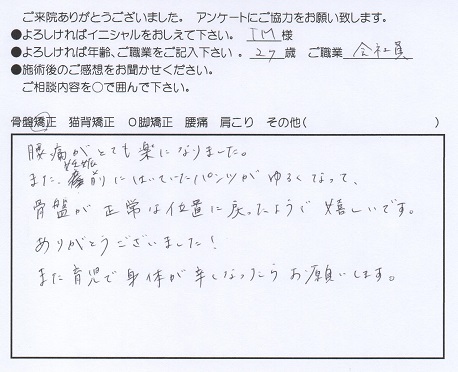 ご来院ありがとうございました。 アンケートにご協力をお願い致します。
●よろしければイニシャルをおしえて下さい。 I M 様
●よろしければ年齢、ご職業をご記入下さい。 27 歳 ご職業 会社員
●施術後のご感想をお聞かせください。
ご相談内容を○で囲んで下さい。
骨盤矯正 猫背矯正 O脚矯正 腰痛 肩こり その他( )
腰痛がとても楽になりました。
また、妊娠前にはいていたパンツが ゆるくなって、
骨盤が正常は位置に戻ったようで嬉しいです。
ありがとうございました!
また育児で身体が辛くなったらお願いします。